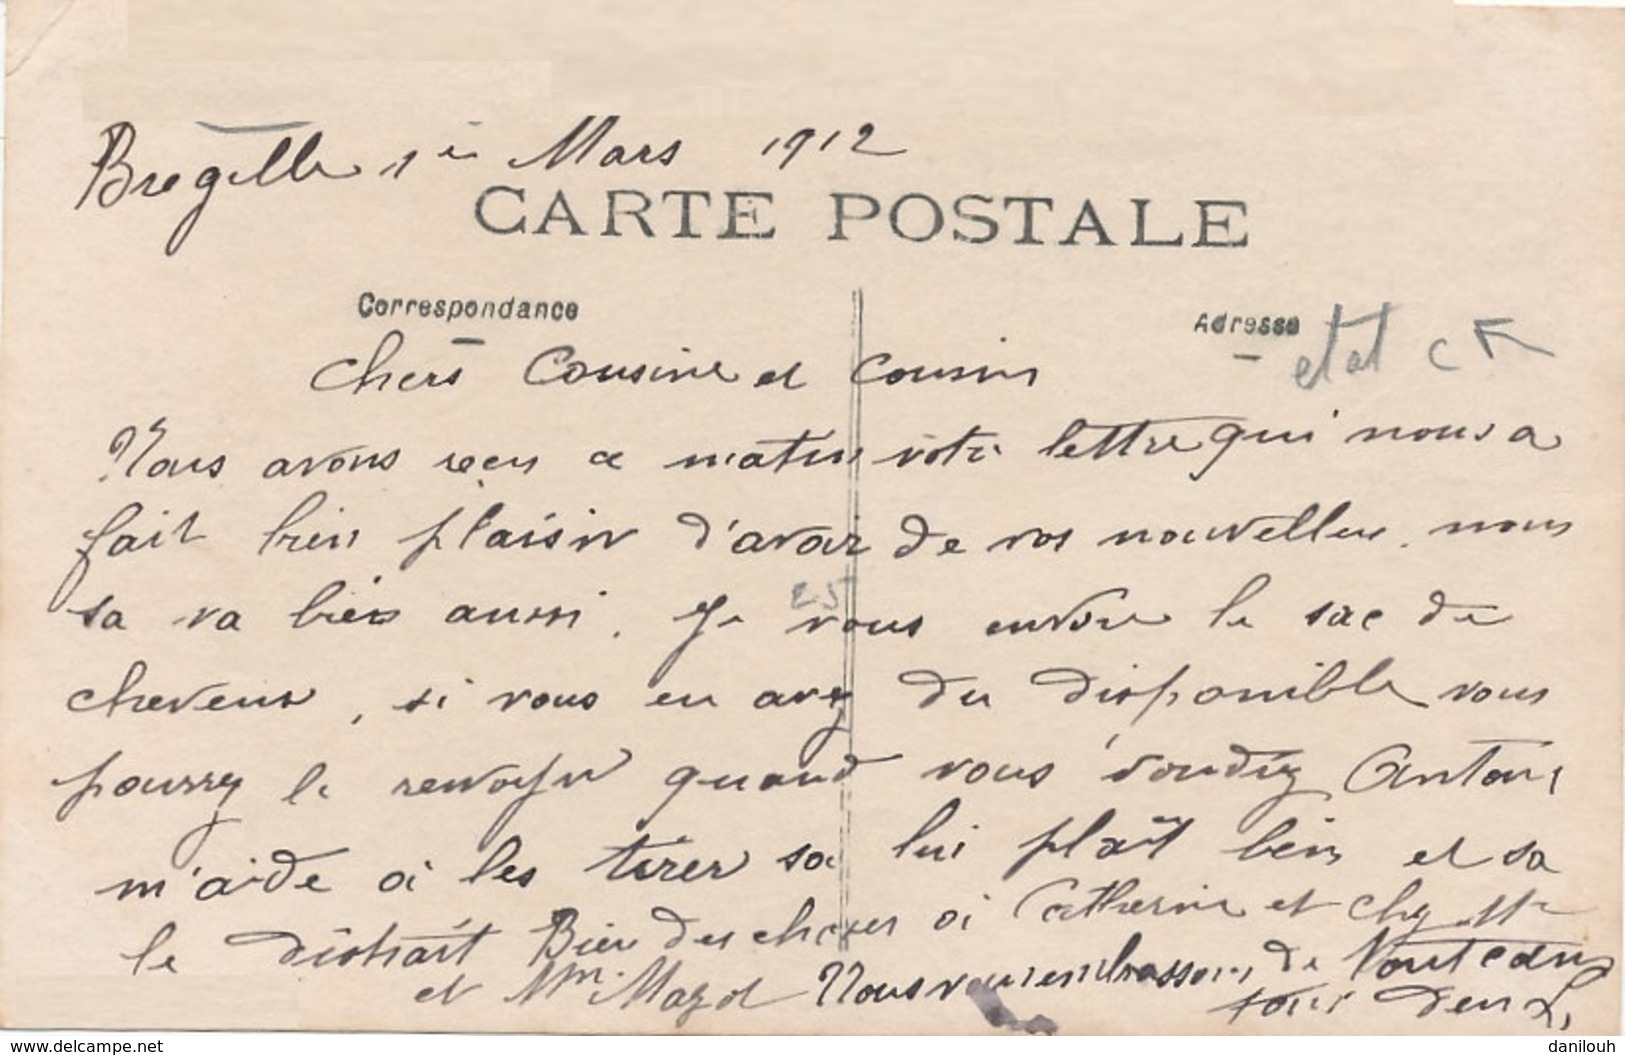 Bregille 1er Mars 1912
CARTE POSTALE
Correspondance
Adresse
etat C
Chers Cousine et Cousin
Nous avons reçu ce matin votre lettre qui nous a
fait bien plaisir d'avoir de vos nouvelles. nous
sa va bien aussi. Je vous envoie le sac de
25
cheveux, si vous en avez du disponible vous
pourrez le renvoyer quand vous voudrez Antoine
m'aide à les tirer sa lui plaît bien et sa
le distrait Bien des choses à Catherine et chez Mr
et Mme Mazot Nous vous embrassons de tout cœur
tous deux
www.delcampe.net
danilouh